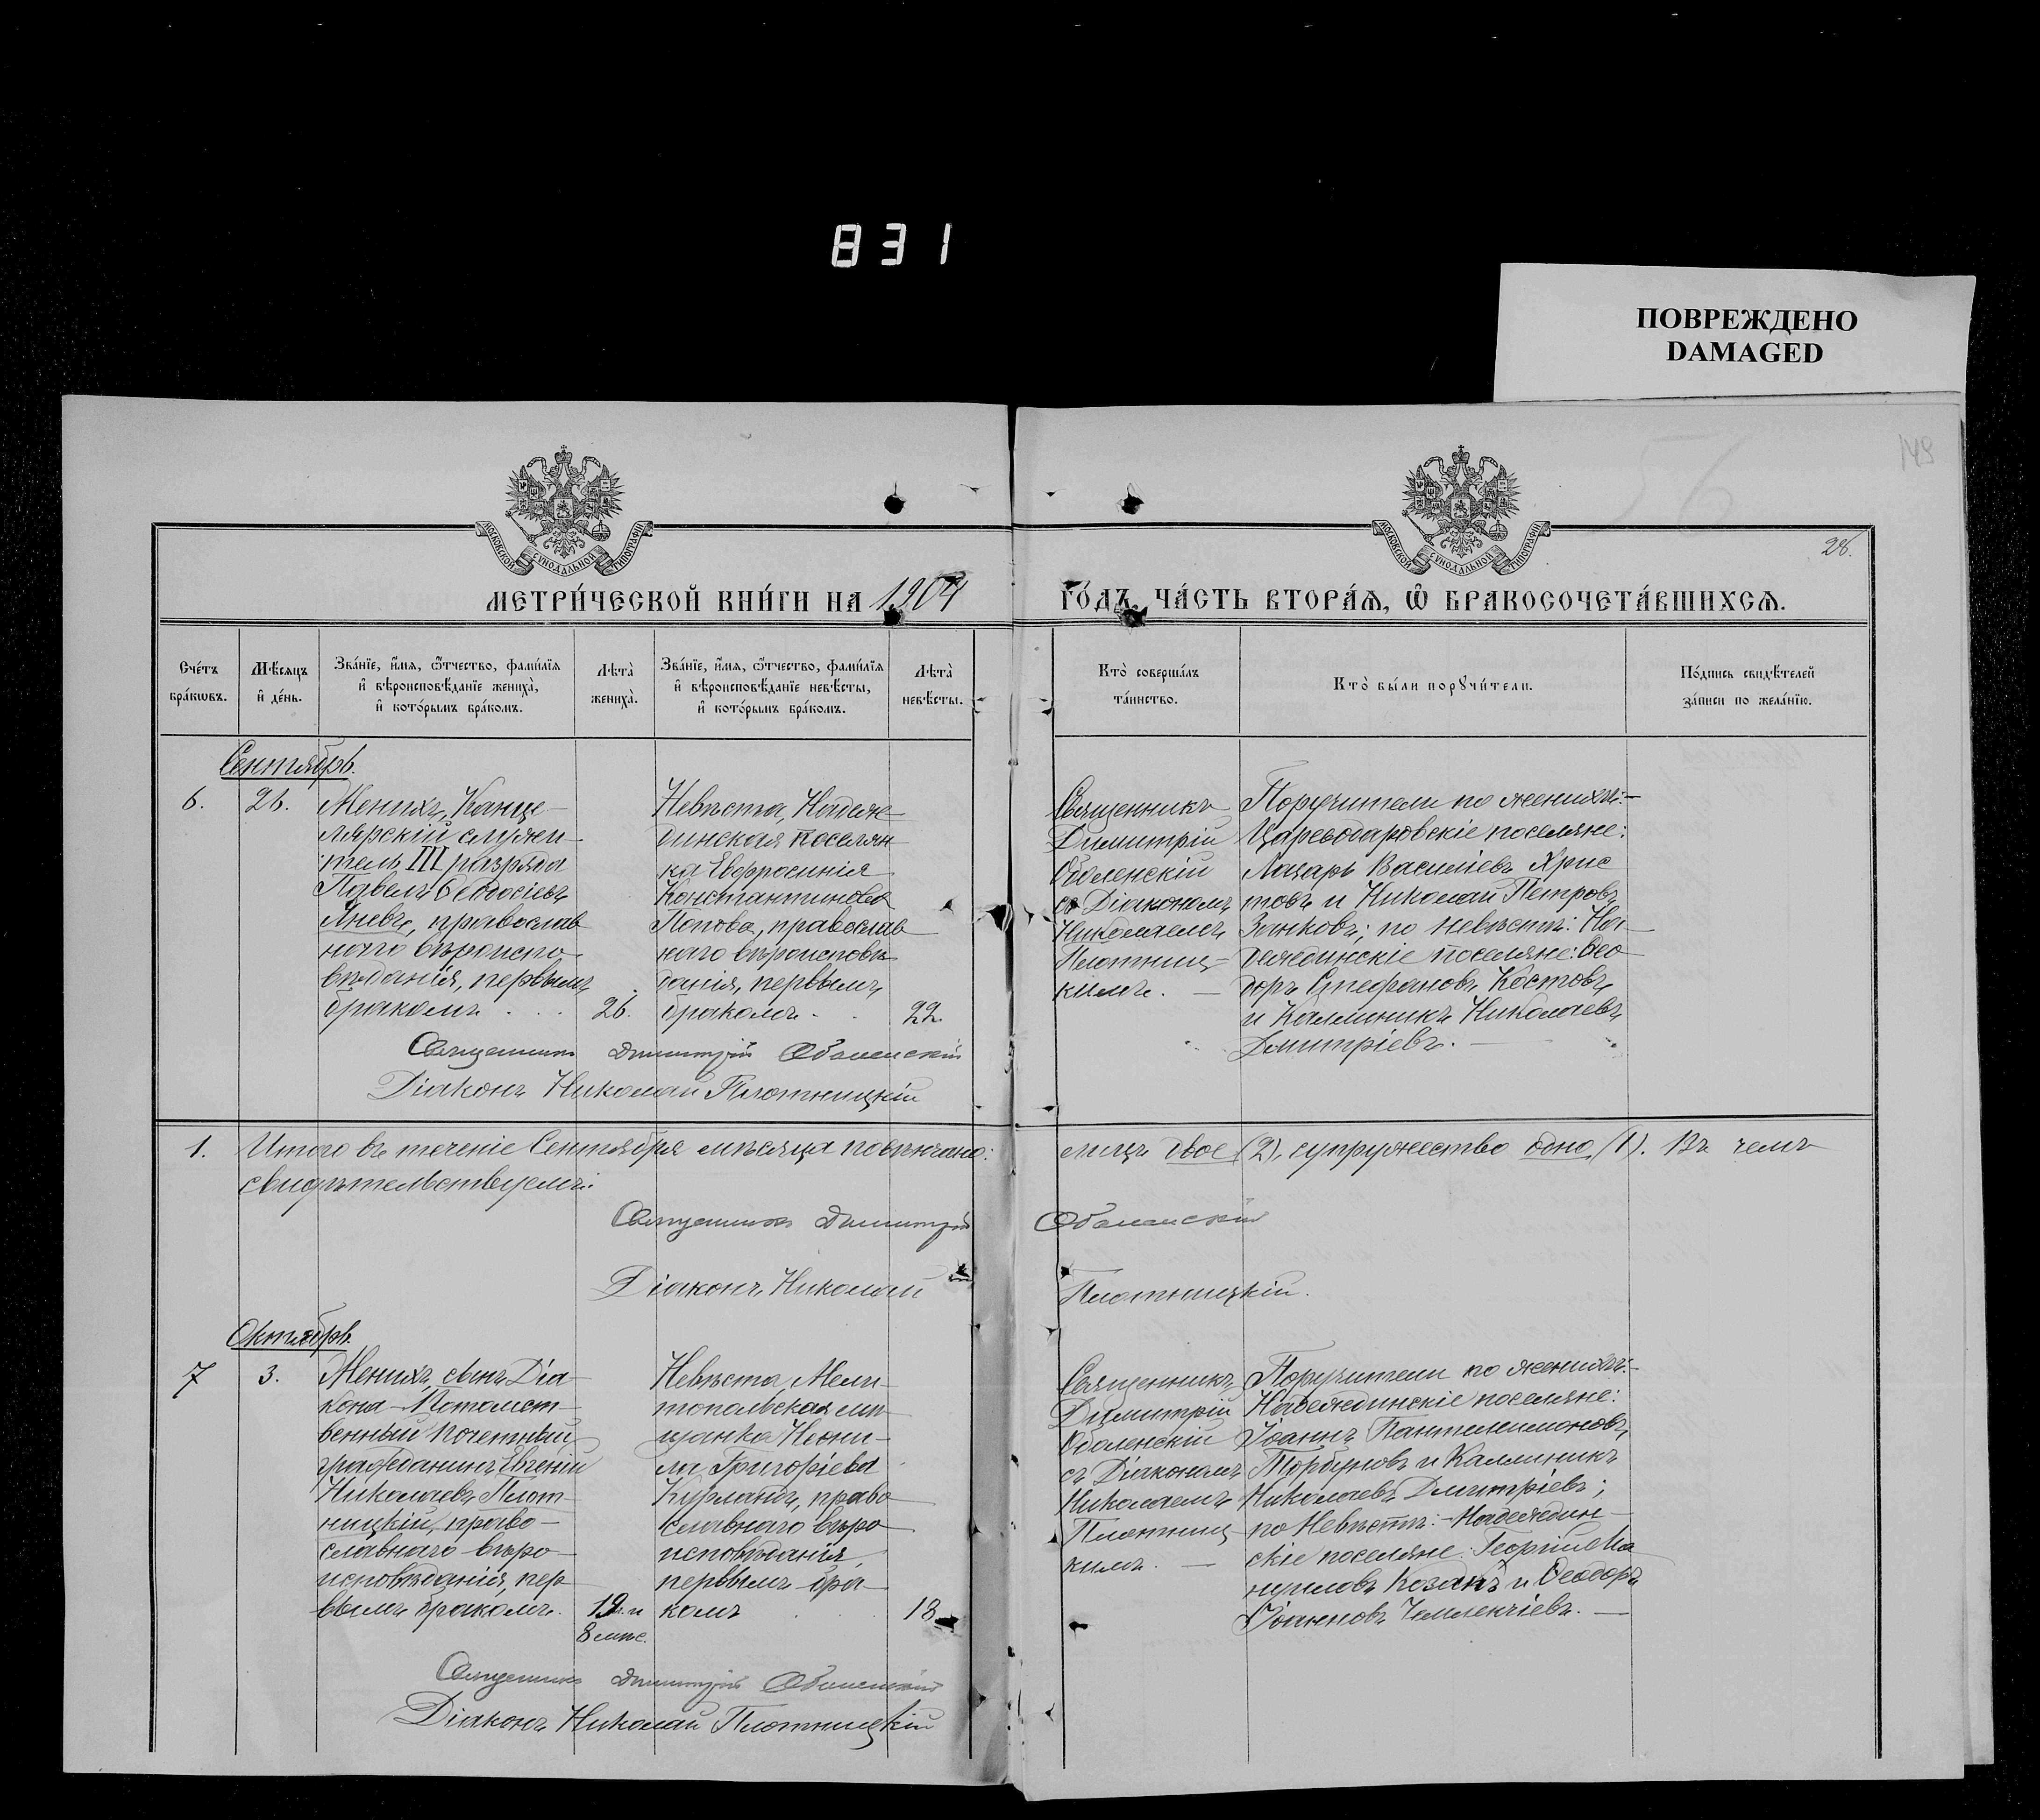 831
ПОВРЕЖДЕНО
DAMAGED
149
56
28.
МОСКОВСКОЙ СѴНОДАЛЬНОЙ ТИПОГРАФІИ
МОСКОВСКОЙ СѴНОДАЛЬНОЙ ТИПОГРАФІИ
МЕТРИ́ЧЕСКОЙ КНИ́ГИ НА 1904
ГО́ДЪ, ЧА́СТЬ ВТОРА́Ѧ, Ѡ҆ БРАКОСОЧЕТА́ВШИХСѦ.
Сче́тъ
бра́кѡвъ.
Мѣ́сѧцъ
и҆ де́нь.
Зва́нїе, и҆́мѧ, ѻ҆́тчество, фами́лїѧ
и҆ вѣроисповѣ́данїе жениха̀,
и҆ кото́рымъ бра́комъ.
Лѣ́та̀
жениха̀.
Зва́нїе, и҆́мѧ, ѻ҆́тчество, фами́лїѧ
и҆ вѣроисповѣ́данїе невѣ́сты,
и҆ кото́рымъ бра́комъ.
Лѣ́та̀
невѣ́сты.
Кто̀ соверша́лъ
та́инство.
Кто̀ бы́ли порꙋчи́тели.
По́дпись свидѣ́телей
за́писи по жела́нїю.
Сентябрь.
6.
26.
Женихъ, Канце-
лярскій служи-
тель III разряда
Павелъ Ѳеодосіевъ
Яневъ, православ
наго вѣроиспо-
вѣданія, первымъ
бракомъ . . .
26.
Невѣста, Надеж-
динская поселян
ка Евфросинія
Константинова
Попова, православ
наго вѣроисповѣ
данія, первымъ
бракомъ . .
22.
Священникъ
Димитрій
Оболенскій
съ Діакономъ
Николаемъ
Плотниц-
кимъ. —
Поручители по женихѣ:-
Цареводаровскіе поселяне:
Лазарь Василіевъ Хрис
товъ и Николай Петровъ
Зинковъ; по невѣстѣ: На-
деждинскіе поселяне: Ѳео
доръ Стефановъ Костовъ
и Каллиникъ Николаевъ
Дмитріевъ. —
Священникъ Димитрій Оболенскій
Діаконъ Николай Плотницкій
1.
Итого въ теченіе Сентября мѣсяца повѣнчано: лицъ двое (2), супружество одно (1). Въ чемъ
свидѣтельствуемъ:
Священникъ Димитрій Оболенскій
Діаконъ Николай Плотницкій.
Октябрь.
7
3.
Женихъ, сынъ Діа-
кона-Потомст-
венный почетный
гражданинъ Евгеній
Николаевъ Плот-
ницкій, право-
славнаго вѣро-
исповѣданія, пер
вымъ бракомъ.
19 л. и
8 мѣс.
Невѣста, Мели-
топольская мѣ-
щанка Неони-
ла Григоріева
Курландъ, право
славнаго вѣро
исповѣданія,
первымъ бра-
комъ . .
18
Священникъ
Димитрій
Оболенскій
съ Діакономъ
Николаемъ
Плотниц-
кимъ. —
Поручители по женихѣ:-
Надеждинскіе поселяне:
Іоаннъ Пантелеимоновъ
Торбуновъ и Каллиникъ
Николаевъ Дмитріевъ;
по Невѣстѣ:- Надеждин-
скіе поселяне: Георгій Ма
Козакъ и Ѳеодоръ
Іоанновъ Чемленчіевъ. —
Священникъ Димитрій Оболенскій
Діаконъ Николай Плотницкій